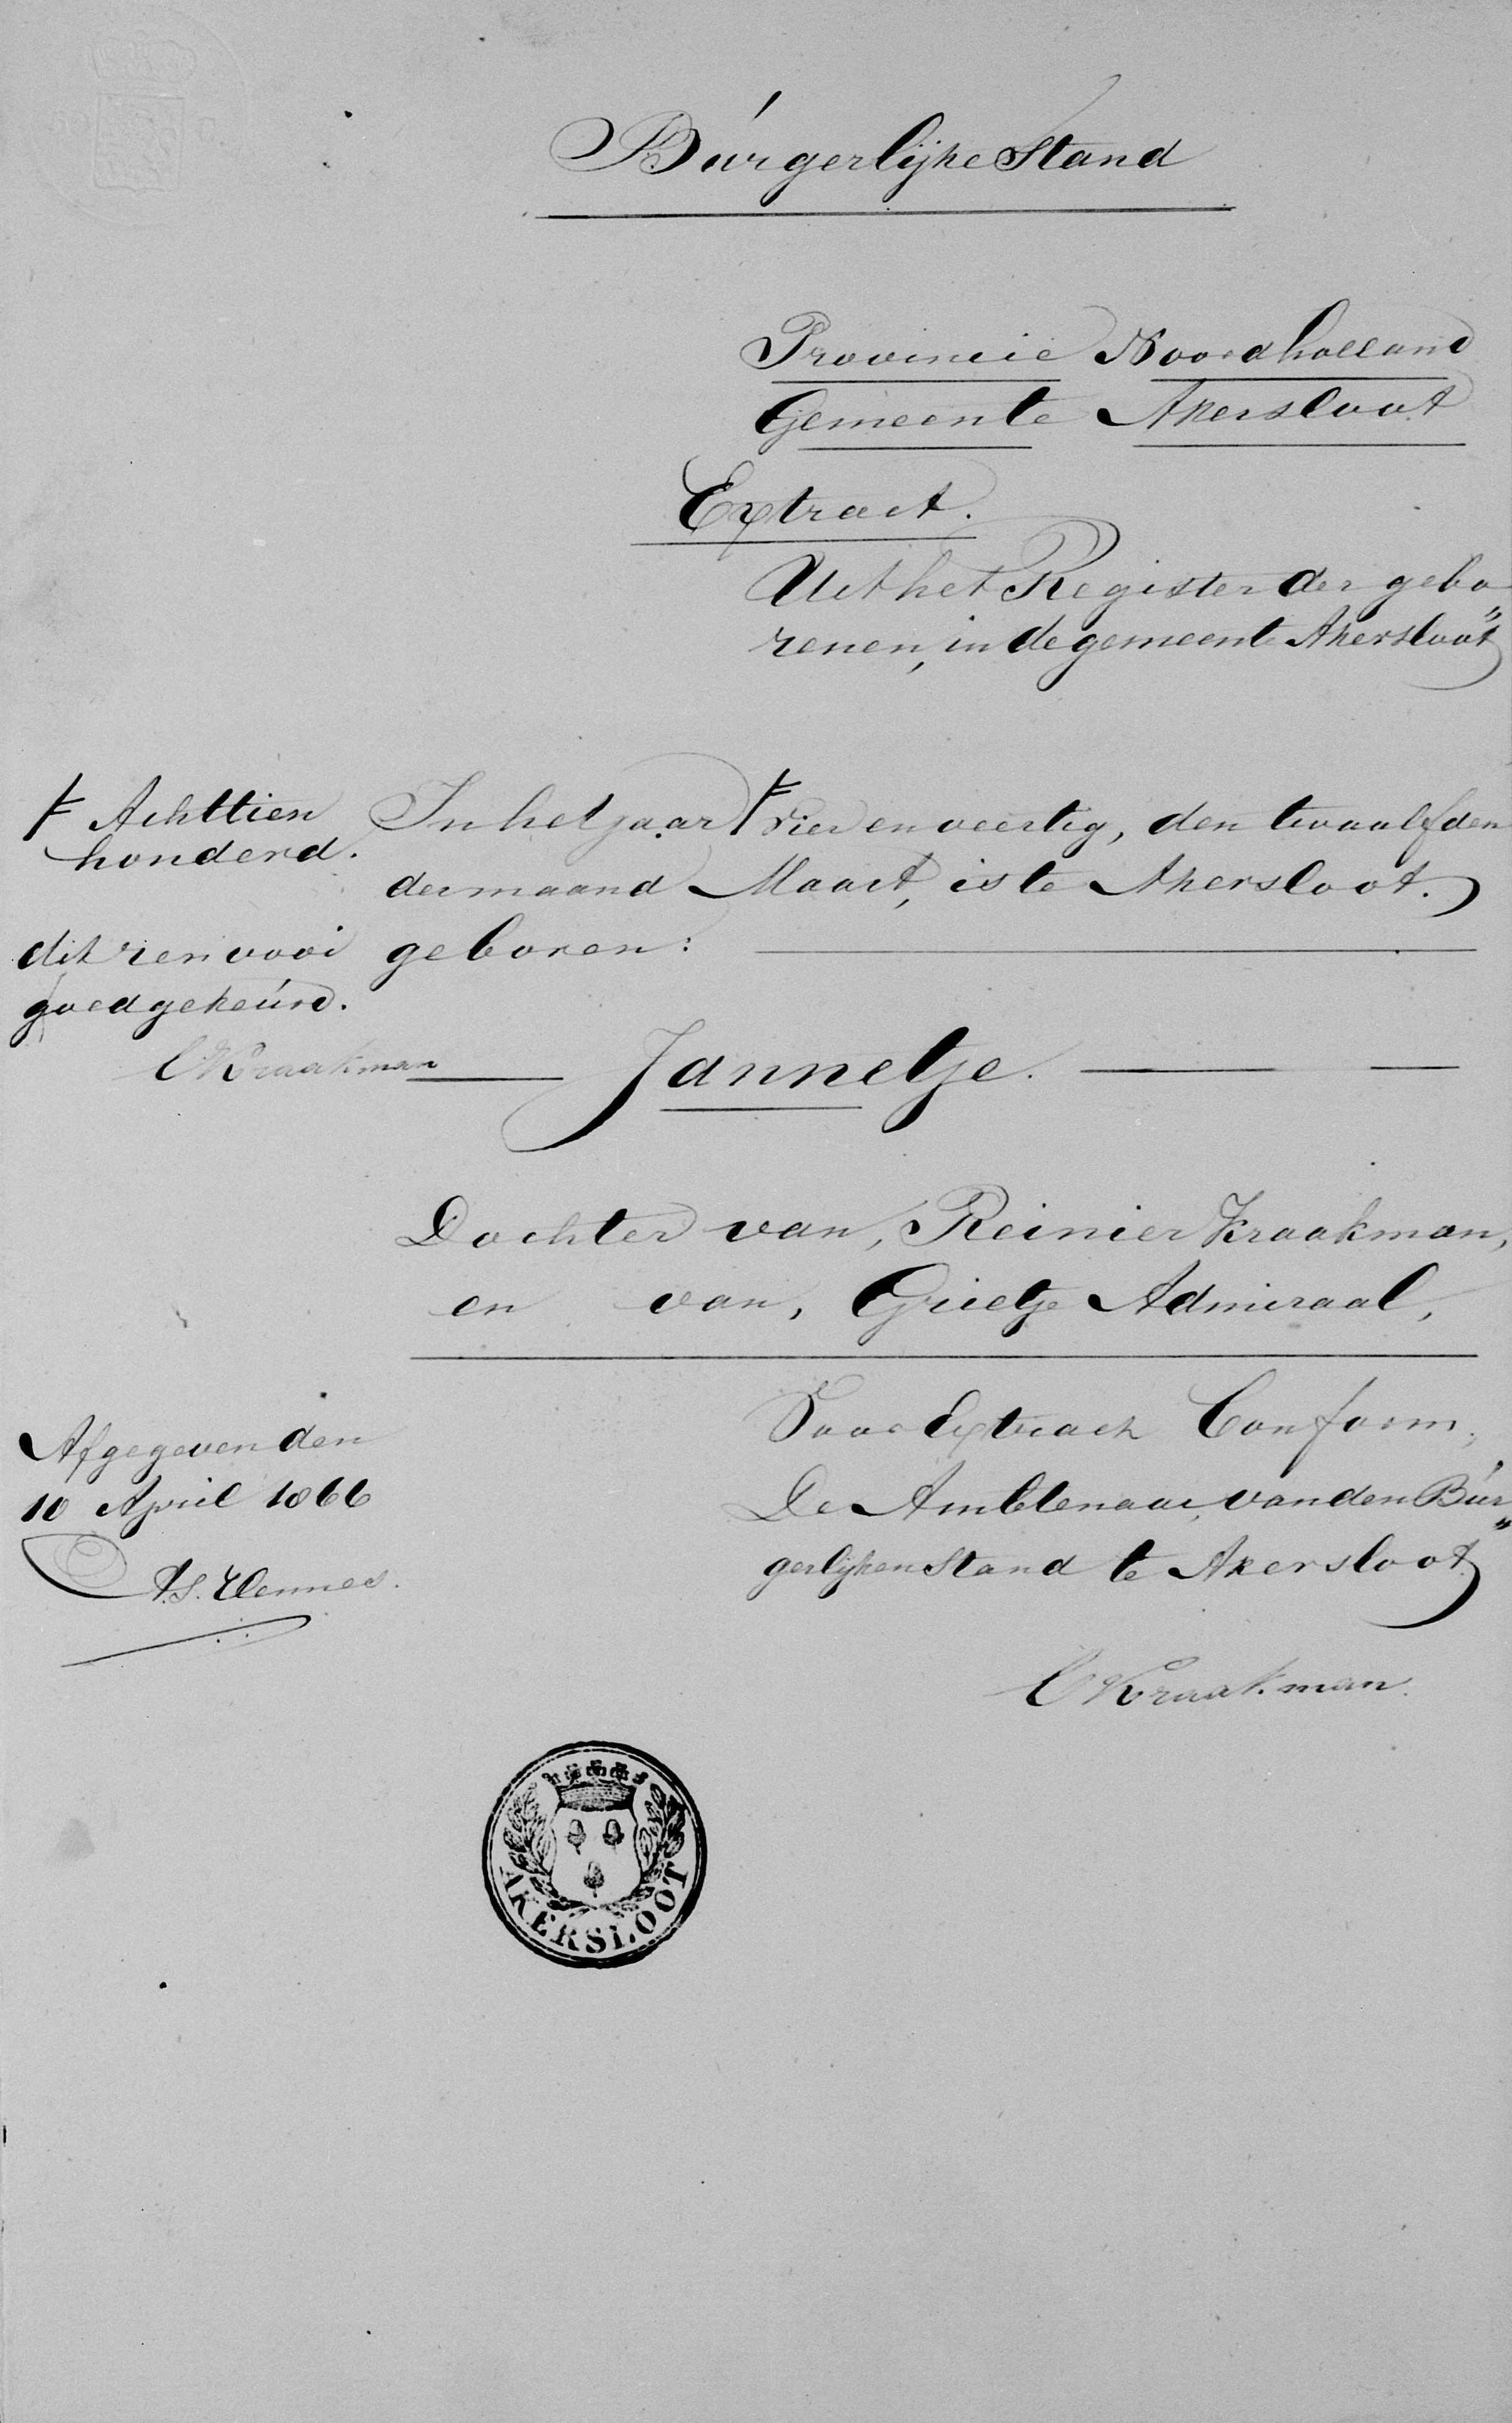 Burgerlijke Stand
Provincie Noordholland
Gemeente Akersloot
Extract.
Uit het Register der gebo
renen, in de gemeente Akersloot
Achttien
honderd.
dit renvooi
goedgekeurd.
CKraakman
In het jaar vier en veertig, den twaalfden
der maand Maart, is te Akersloot.
geboren:
Jannetje.
Dochter van, Reinier Kraakman,
en van, Grietje Admiraal,
Afgegeven den
10 April 1866
Voor Extract Conform,
De Ambtenaar, van den Bur„
gerlijken Stand te Akersloot
CKraakman.
AKERSLOOT